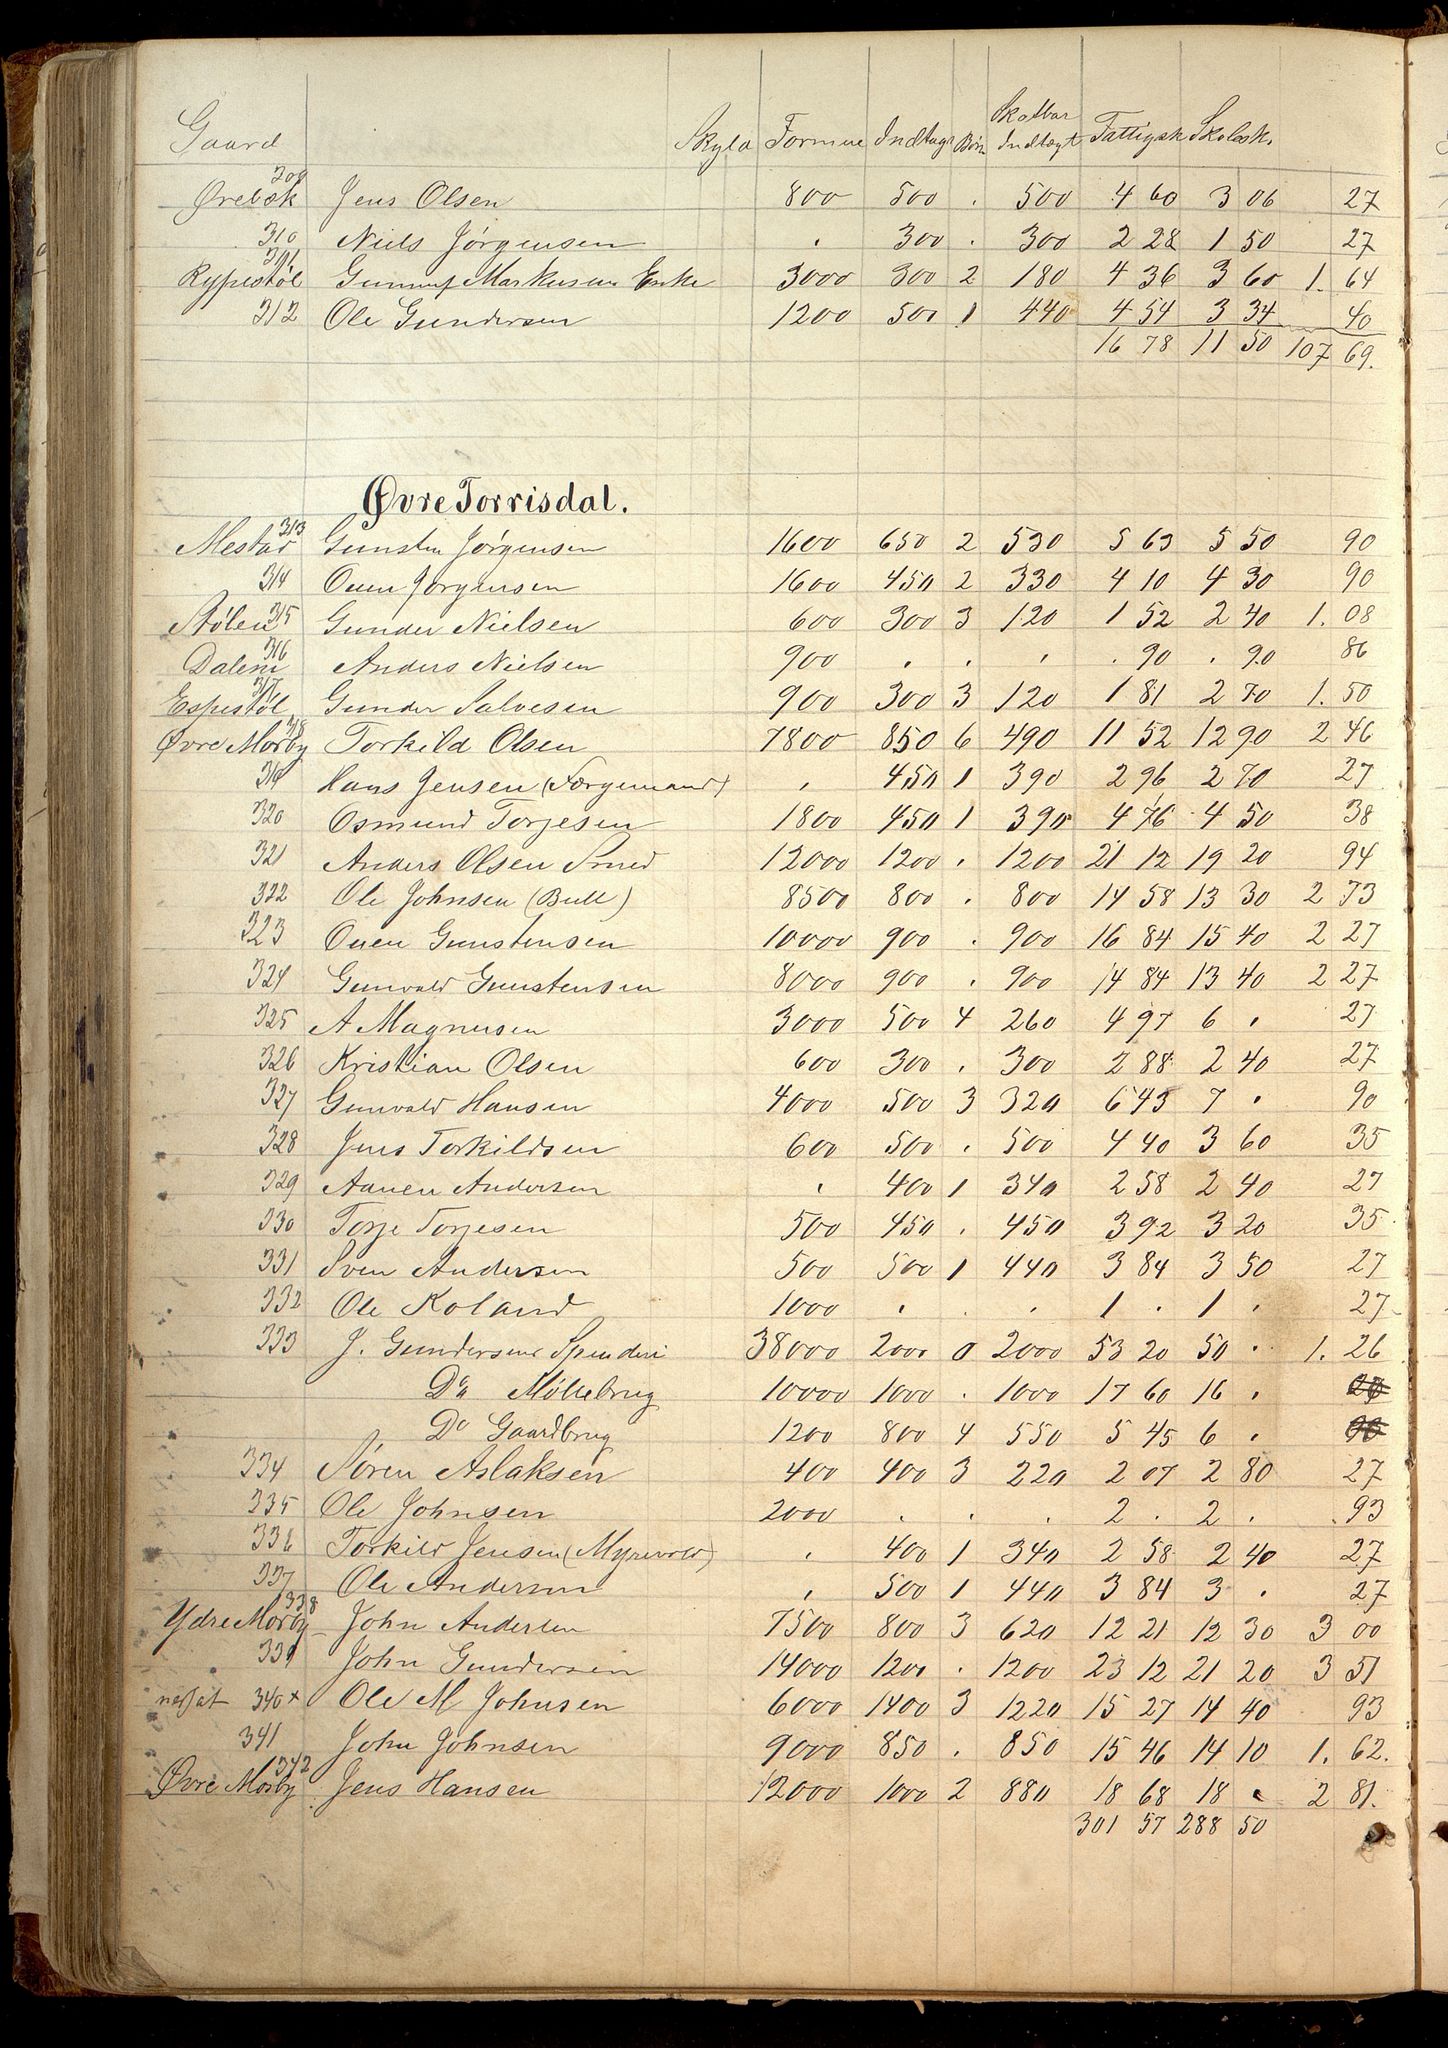 Gaard Skyld Formue Indtægt Børn Skatbar Indtægt Fattigsk Skolesk.
309 Ørebæk Jens Olsen 800 500 . 500 4 60 3 06 27
310 Niels Jørgensen . 300 . 300 2 28 1 50 27
311 Rypestøl Gunnuf Markusen Enke 3000 300 2 180 4 36 3 60 1. 64
312 Ole Gundersen 1200 500 1 440 4 54 3 34 40
16 78 11 50 107 69.
Øvre Torrisdal.
313 Mestad Gunsten Jørgensen 1600 650 2 530 5 63 5 50 90
314 Ouen Jørgensen 1600 450 2 330 4 10 4 30 90
Stølen 315 Gunder Nielsen 600 300 3 120 1 52 2 40 1. 08
316 Dalene Anders Nielsen 900 . . . . 90 . 90 86
317 Espestøl Gunder Salvesen 900 300 3 120 1 81 2 70 1. 50
318 Øvre Mosby Torkild Olsen 7800 850 6 490 11 52 12 90 2 46
319 Hans Jensen (Færgemand) . 450 1 390 2 96 2 70 27
320 Osmund Torjesen 1800 450 1 390 4 76 4 50 38
321 Anders Olsen Smed 12000 1200 . 1200 21 12 19 20 94
322 Ole Johnsen (Bull) 8500 800 . 800 14 58 13 30 2 73
323 Ouen Gunstensen 10000 900 . 900 16 84 15 40 2 27
324 Gunvald Gunstensen 8000 900 . 900 14 84 13 40 2 27
325 A Magnusen 3000 500 4 260 4 97 6 . 27
326 Kristian Olsen 600 300 . 300 2 88 2 40 27
327 Gunvald Hansen 4000 500 3 320 6 43 7 . 90
328 Jens Torkildsen 600 500 . 500 4 40 3 60 35
329 Aanen Andersen . 400 1 340 2 58 2 40 27
330 Torje Torjesen 500 450 . 450 3 92 3 20 35
331 Sven Andersen 500 500 1 440 3 84 3 50 27
332 Ole Roland 1000 . . . 1 . 1 . 27
333 J. Gundersens Spinderi 38000 2000 0 2000 53 20 50 . 1. 26
Do Møllebrug 10000 1000 . 1000 17 60 16 .
Do Gaardbrug 1200 800 4 550 5 45 6 .
334 Søren Aslaksen 400 400 3 220 2 07 2 80 27
335 Ole Johnsen 2000 . . . 2 . 2 . . 93
336 Torkild Jensen (Myrevold) . 400 1 340 2 58 2 40 27
337 Ole Andersen . 500 1 440 3 84 3 . 27
338 Ydre Mosby John Andersen 7500 800 3 620 12 21 12 30 3 00
339 John Gundersen 14000 1200 . 1200 23 12 21 20 3 51
340 x Ole M Johnsen 6000 1400 3 1220 15 27 14 40 93
341 John Johnsen 9000 850 . 850 15 46 14 10 1. 62.
342 Øvre Mosby Jens Hansen 12000 1000 2 880 18 68 18 . 2 81.
301 57 288 50